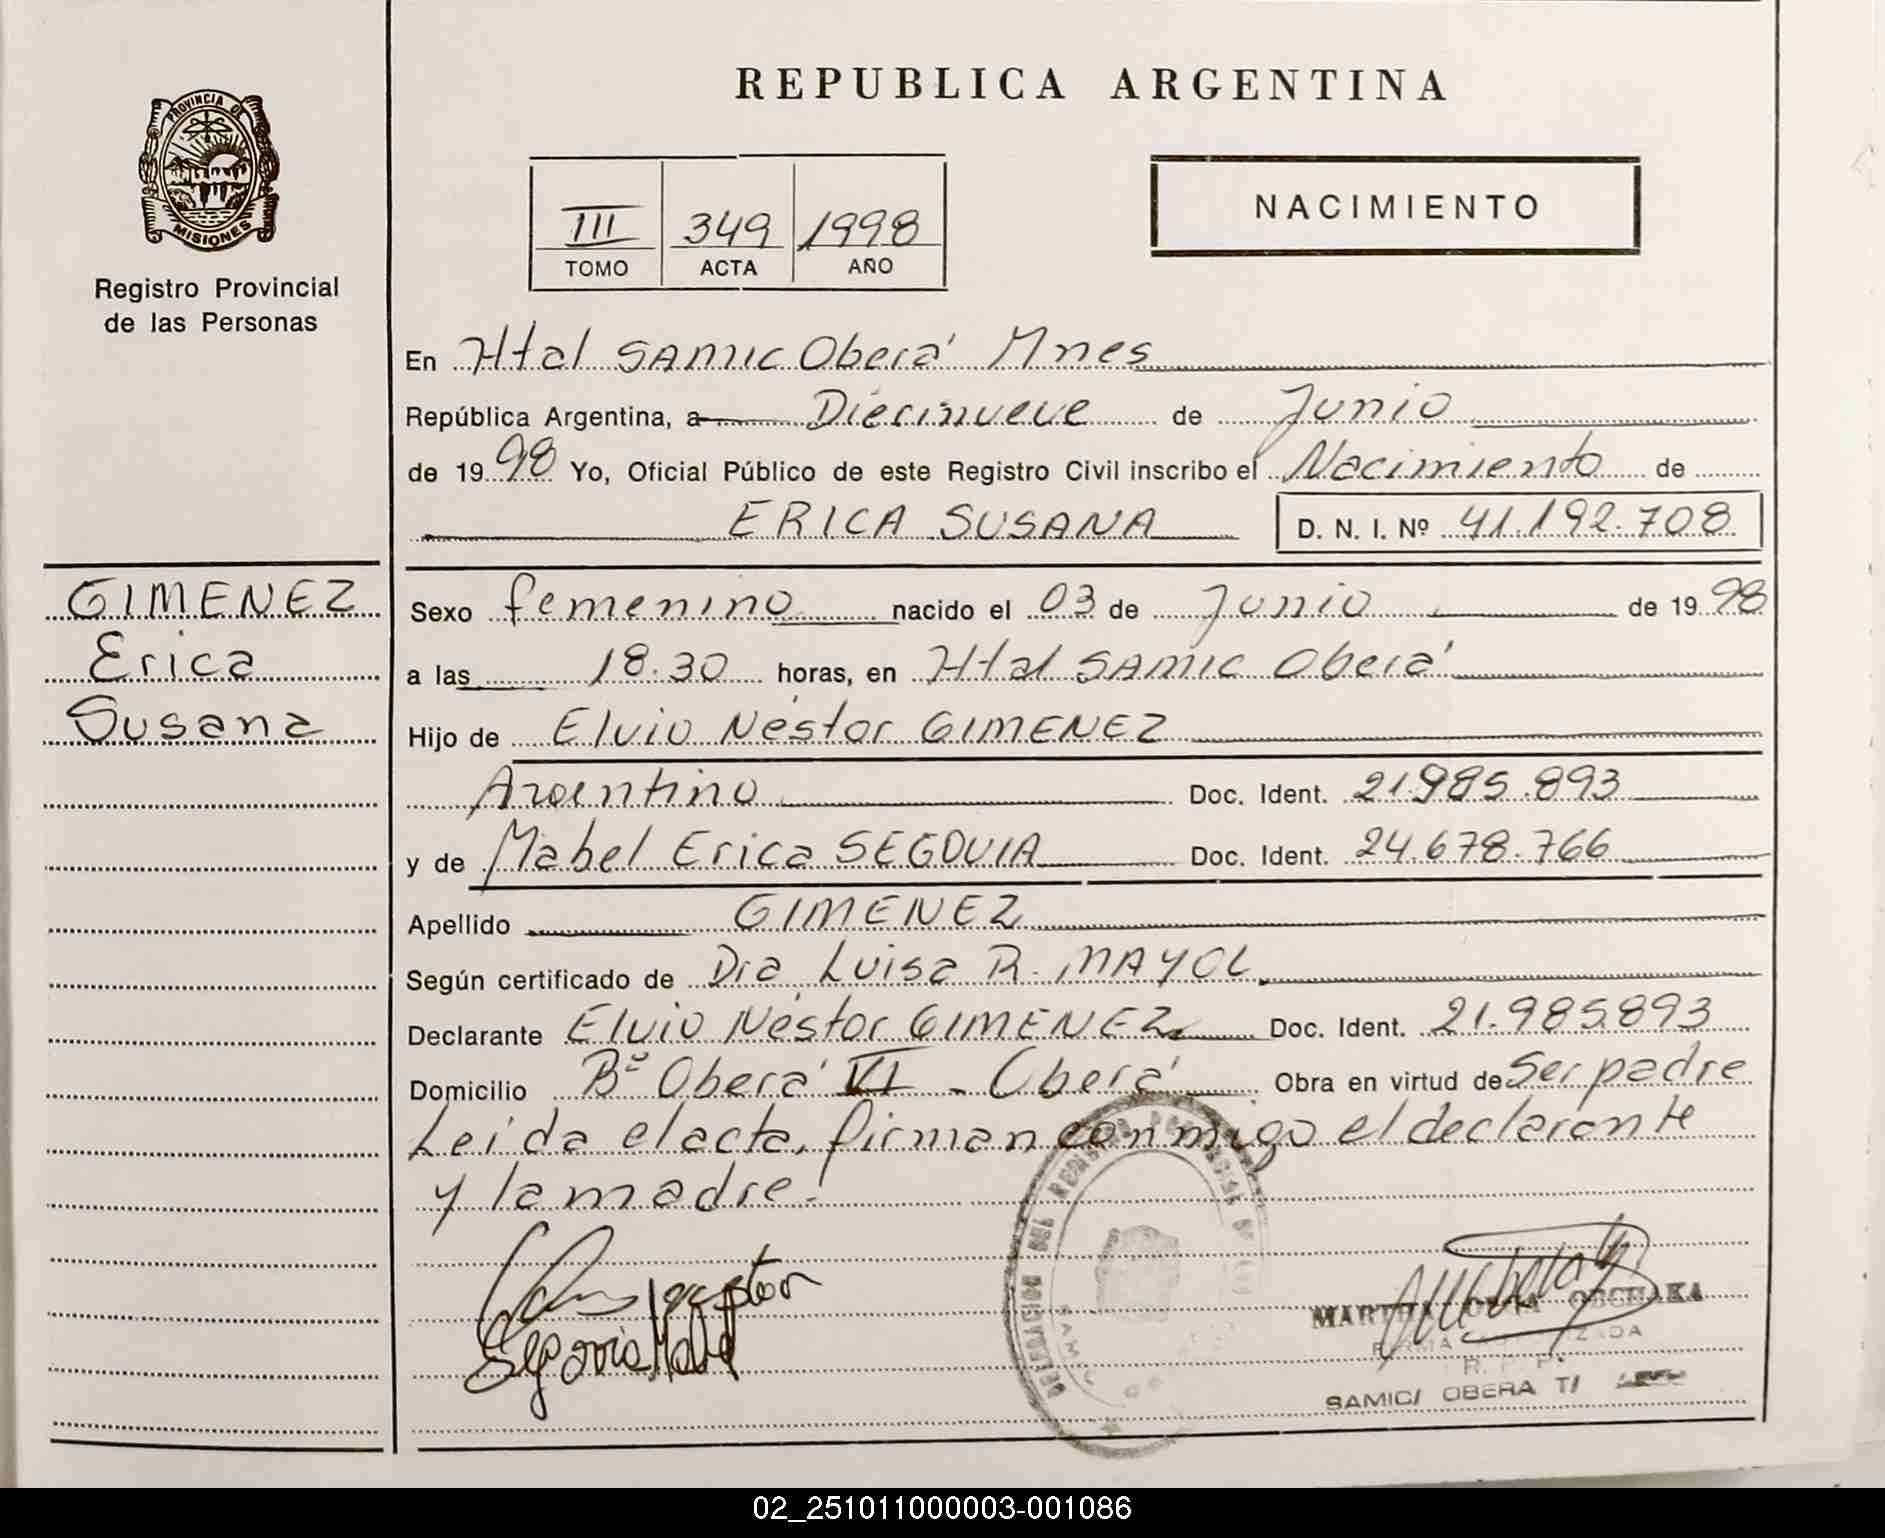 REPUBLICA ARGENTINA
PROVINCIA DE
MISIONES
Registro Provincial
de las Personas
III 349 1998
TOMO ACTA AÑO
NACIMIENTO
En Htal SAMIC Oberá Mnes
República Argentina, a Diecinueve de Junio
de 1998 Yo, Oficial Público de este Registro Civil inscribo el Nacimiento de
ERICA SUSANA D. N. I. Nº 41.192.708
GIMENEZ
Erica
Susana
Sexo femenino nacido el 03 de Junio de 1998
a las 18.30 horas, en Htal SAMIC Oberá
Hijo de Elvio Néstor GIMENEZ
Argentino Doc. Ident. 21.985.893
y de Mabel Erica SEGOVIA Doc. Ident. 24.678.766
Apellido GIMENEZ
Según certificado de Dra Luisa R. MAYOL
Declarante Elvio Néstor GIMENEZ Doc. Ident. 21.985893
Domicilio Bº Oberá VI - Oberá Obra en virtud de Ser padre
Leída el acta, firman conmigo el declarante
y la madre.
Segovia Mabel
MARTHA
R. P. P.
SAMIC/ OBERA T/
02_251011000003-001086